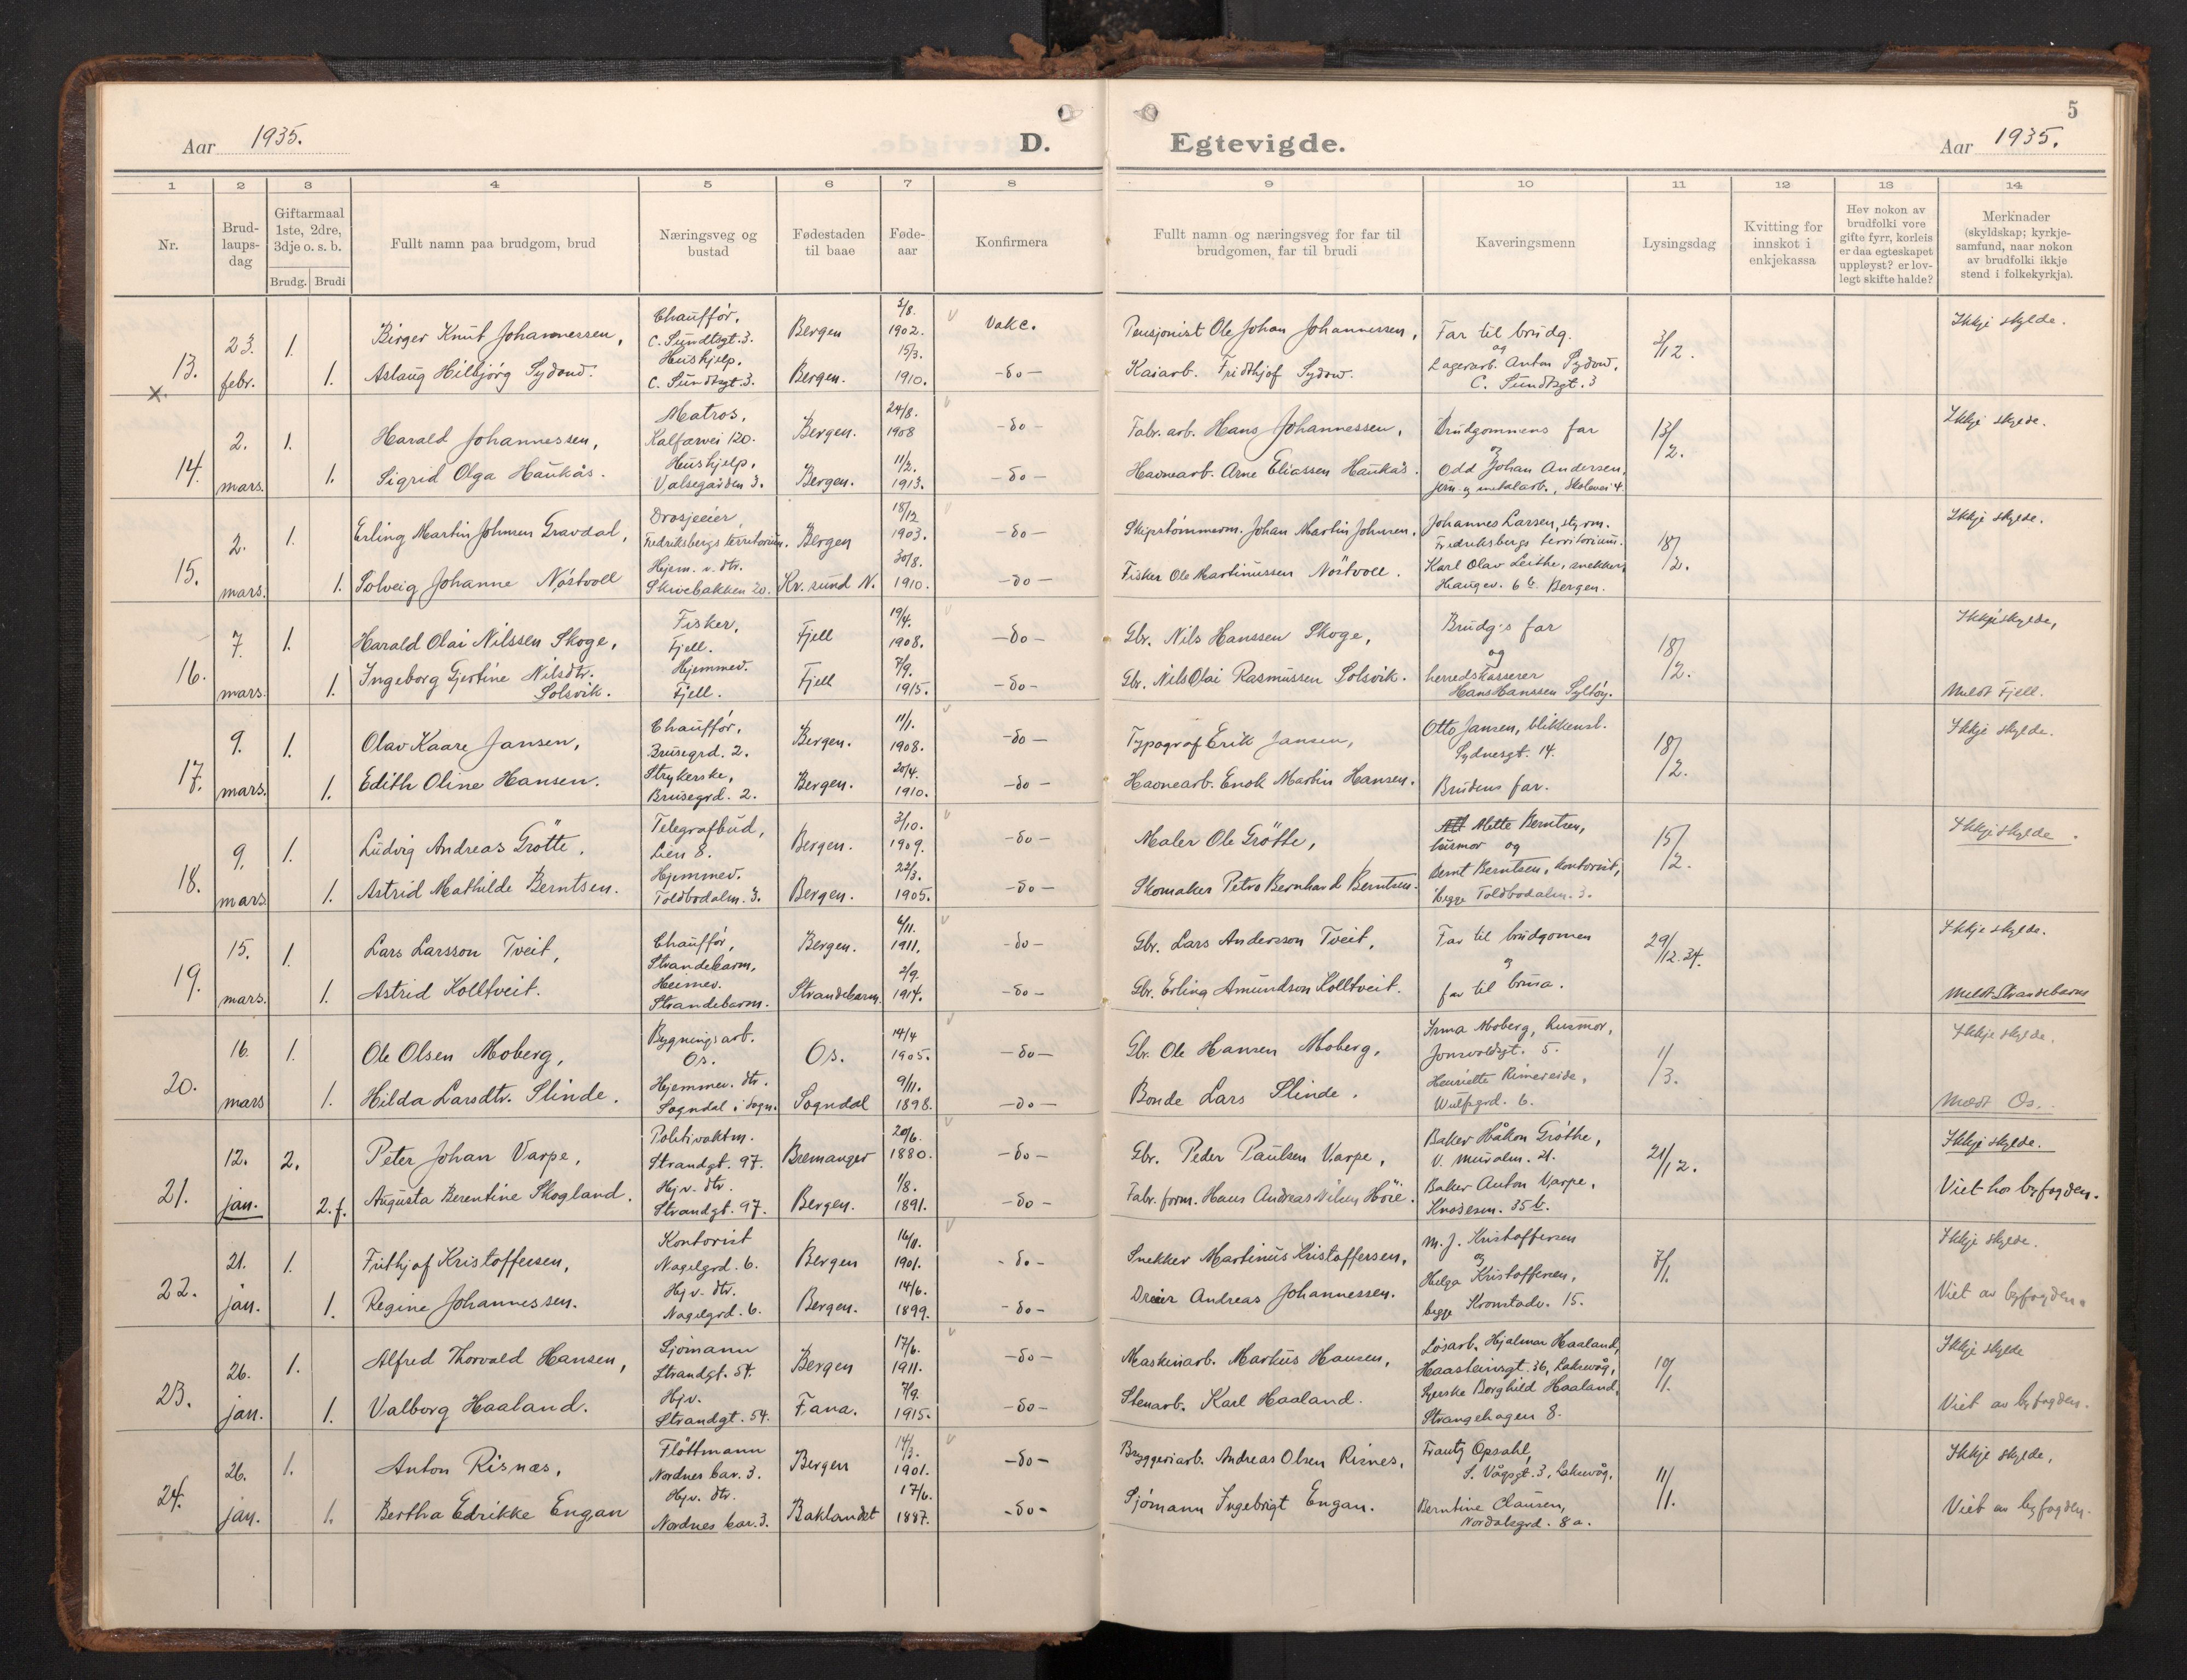 5
Aar 1935.
D.
Egtevigde.
Aar 1935.
1 2 3 4 5 6 7 8 9 10 11 12 13 14
Nr.
Brud-
laups-
dag
Giftarmaal
1ste, 2dre,
3dje o. s. b.
Brudg. Brudi
Fullt namn paa brudgom, brud
Næringsveg og
bustad
Fødestaden
til baae
Føde-
aar
Konfirmera
Fullt namn og næringsveg for far til
brudgomen, far til brudi
Kaveringsmenn
Lysingsdag
Kvitting for
innskot i
enkjekassa
Hev nokon av
brudfolki vore
gifte fyrr, korleis
er daa egteskapet
uppløyst? er lov-
legt skifte halde?
Merknader
(skyldskap; kyrkje-
samfund, naar nokon
av brudfolki ikkje
stend i folkekyrkja).
13.
x.
23.
febr.
1.
Birger Knut Johannessen,
Chaufför,
C. Sundtsgt. 3.
Bergen
3/8.
1902.
Vakc.
Pensjonist Ole Johan Johannessen,
Far til brudg.
og
3/12.
Ikkje skylde.
1.
Aslaug Hilbjörg Sydow.
Hushjelp,
C. Sundtsgt. 3.
Bergen.
15/3.
1910.
-do-
Kaiarb. Fridthjof Sydow.
Lagerarb. Anton Sydow.
C. Sundtsgt. 3
14.
2.
mars.
1.
Harald Johannessen,
Matros,
Kalfarvei 120.
Bergen.
24/8.
1908
-do-
Fabr. arb. Hans Johannessen,
Brudgommens far
og
13/2.
Ikkje skylde.
1.
Sigrid Olga Haukås.
Hushjelp,
Valsegården 3.
Bergen.
11/2.
1913.
-do-
Havnearb. Arne Eliassen Haukås.
Odd Johan Andersen,
jern- og metalarb., Skolevei 4.
15.
2.
mars.
1.
Erling Martin Johnsen Gravdal,
Drosjeeier
Fredriksbergs territorium.
Bergen
18/12
1903.
-do-
Skipstømmerm. Johan Martin Johnsen.
Johannes Larsen, styrm.
Fredriksbergs territorium.
18/2.
Ikkje skylde.
1.
Solveig Johanne Nöstvoll
Hjem. v. dtr.
Skivebakken 20.
Kr. sund N.
30/8.
1910.
-do-
Fisker Ole Martinussen Nöstvoll.
Karl Olav Leithe, snekker,
Haugev. 6 b. Bergen.
16.
7.
mars.
1.
Harald Olai Nilssen Skoge,
Fisker,
Fjell.
Fjell
19/4.
1908.
-do-
Gbr. Nils Hanssen Skoge,
Brudg's far
og
18/2.
Ikkje skylde,
1.
Ingeborg Gjertine Nilsdtr.
Solsvik.
Hjemmev.
Fjell.
Fjell
7/9.
1915.
-do-
Gbr. Nils Olai Rasmussen Solsvik.
herredskasserer
Hans Hanssen Syltöy.
Meldt Fjell.
17.
9.
mars.
1.
Olav Kaare Jansen,
Chaufför,
Brusegrd. 2.
Bergen.
11/1.
1908.
-do-
Typograf Erik Jansen,
Otto Jansen, blikkensl.
Sydnesgt. 14.
18/2.
Ikkje skylde.
1.
Edith Oline Hansen.
Strykerske,
Brusegrd. 2.
Bergen.
20/4.
1910.
-do-
Havnearb. Enok Martin Hansen.
Brudens far.
18.
9.
mars
1.
Ludvig Andreas Grötte,
Telegrafbud,
Lien 8.
Bergen.
3/10.
1909.
-do-
Maler Ole Grötte,
Mette Berntsen,
husmor og
15/2.
Ikkje skylde.
1.
Astrid Mathilde Berntsen.
Hjemmev.
Toldbodalm. 3.
Bergen.
22/3.
1905.
-do-
Skomaker Petro Bernhard Berntsen.
Bernt Berntsen, kontorist,
begge Toldbodalm. 3.
19.
15.
mars.
1.
Lars Larsson Tveit,
Chaufför,
Strandebarm,
Bergen.
6/11.
1911.
-do-
Gbr. Lars Andersson Tveit,
Far til brudgomen
og
29/12.34.
Ikkje skylde.
1.
Astrid Kolltveit.
Heimev.
Strandebarm.
Strandebarm.
2/9.
1914.
-do-
Gbr. Erling Amundson Kolltveit.
far til brura.
Meldt Strandebarm
20.
16.
mars
1.
Ole Olsen Moberg,
Bygningsarb.
Os.
Os.
14/4
1905.
-do-
Gbr. Ole Hansen Moberg,
Irma Moberg, husmor,
Jonsvoldsgt. 5.
1/3.
Ikkje skylde.
1.
Hilda Larsdtr. Slinde.
Hjemmev. dtr.
Sogndal i Sogn.
Sogndal
9/11.
1898.
-do-
Bonde Lars Slinde.
Henriette Rimereide,
Wulfsgrd. 6.
Meldt Os.
21.
12.
jan.
2.
Peter Johan Varpe,
Politivaktm.
Strandgt. 97.
Bremanger
20/6.
1880.
-do-
Gbr. Peder Paulsen Varpe,
Baker Håkon Gröthe,
V. Muralm. 21.
21/12.
Ikkje skylde.
2. f.
Augusta Berentine Skogland.
Hj. v. dtr.
Strandgt. 97.
Bergen.
1/8.
1891.
-do-
Fabr. form. Hans Andreas Nilsen Höie.
Baker Anton Varpe,
Knøsesm. 35 b.
Viet hos byfogden.
22.
21.
jan.
1.
Frithjof Kristoffersen,
Kontorist
Nagelgrd. 6.
Bergen
16/11.
1901.
-do-
Snekker Martinus Kristoffersen,
M. J. Kristoffersen
og
7/1.
Ikkje skylde.
1.
Regine Johannessen.
Hj. v. dtr.
Nagelgrd. 6.
Bergen.
14/6.
1899.
-do-
Dreier Andreas Johannessen.
Helga Kristoffersen,
begge Kronstadv. 15.
Viet av byfogden.
23.
26.
jan.
1.
Alfred Thorvald Hansen,
Sjömann
Strandgt. 54.
Bergen
17/6.
1911.
-do-
Maskinarb. Markus Hansen,
Løsarb. Hjalmar Haaland,
Haasteinsgt. 36, Laksevåg,
10/1.
Ikkje skylde
1.
Valborg Haaland.
Hjv.
Strandgt. 54.
Fana.
7/9.
1915.
-do-
Stenarb. Karl Haaland.
Syerske Borghild Haaland,
Strangehagen 8.
Viet av byfogden.
24.
26.
jan.
1.
Anton Risnæs,
Flöttmann
Nordnes bar. 3.
Bergen
14/3.
1901.
-do-
Bryggeriarb. Andreas Olsen Risnes,
Frantz Opsahl,
S. Vågsgt. 3, Laksevåg,
11/1.
Ikkje skylde,
1.
Bertha Edrikke Engan
Hjv. dtr.
Nordnes bar. 3.
Baklandet
17/6.
1887.
-do-
Sjömann Ingebrigt Engan.
Berntine Clausen,
Nordalsgrd. 8 a.
Viet av byfogden.